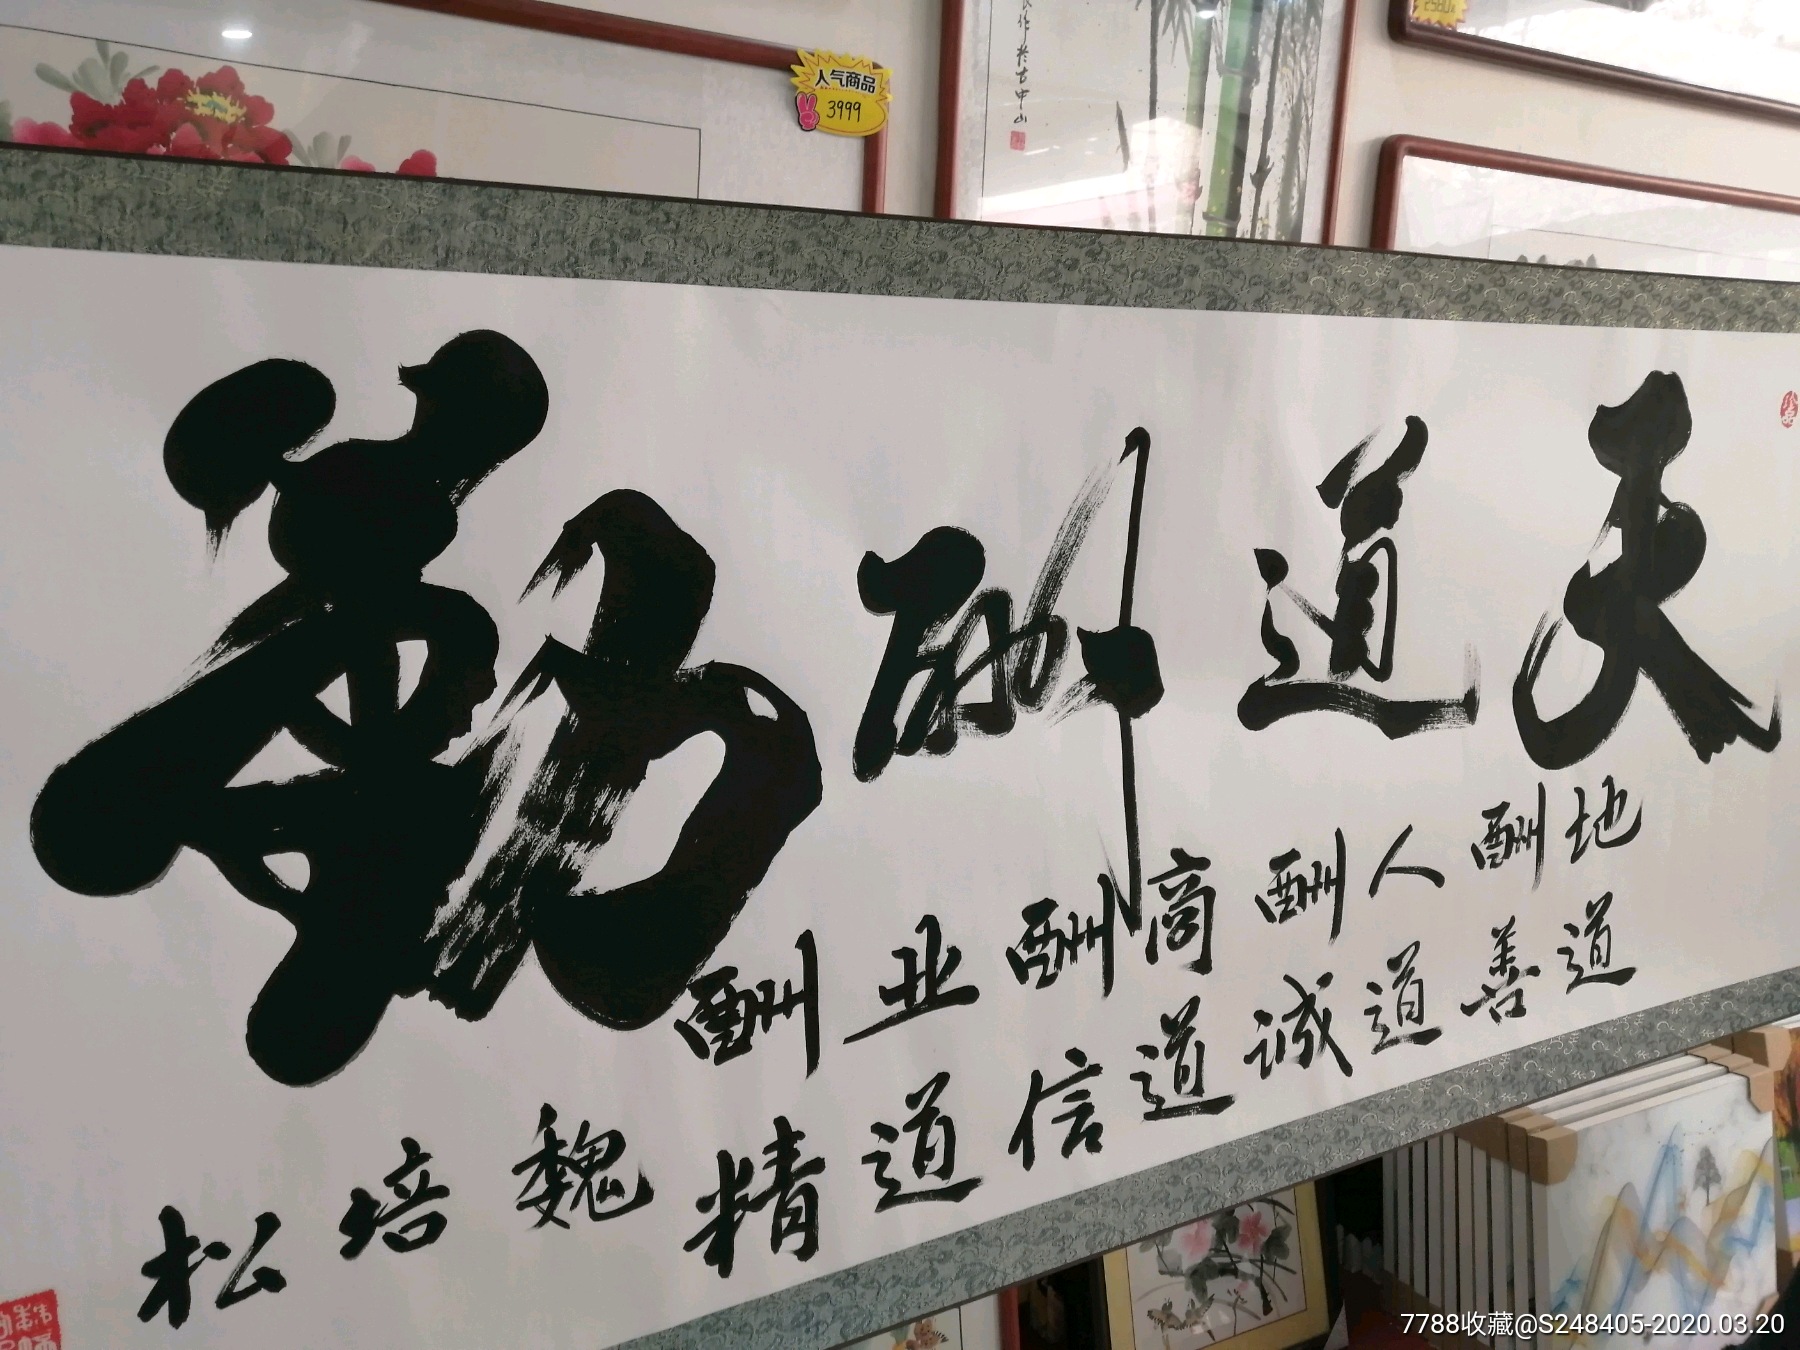 人气商品
3999
作於古中山
天道酬勤
地道酬善人道酬诚商道酬信业道酬精
魏培松
7788收藏@S248405-2020.03.20